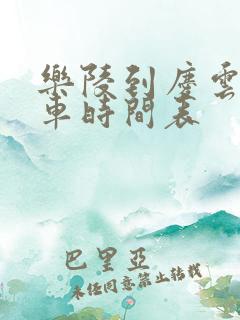 樂陵到慶雲
車時間表
巴里亞
未经同意禁止转载